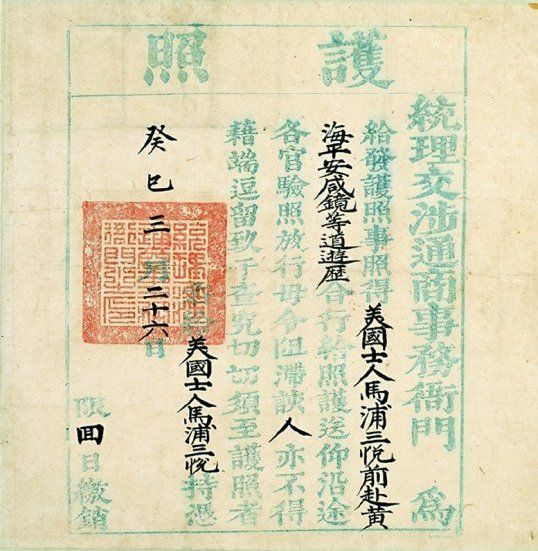 護照
統理交涉通商事務衙門 爲
給發護照事照得美國士人馬浦三悅前赴黃
海平安咸鏡等道遊歷合行給照護送仰沿途
各官驗照放行毋令阻滯該人亦不得
藉端逗留致干查究切切須至護照者
右給美國士人馬浦三悅持憑
癸巳三月二十六日
限回日繳銷